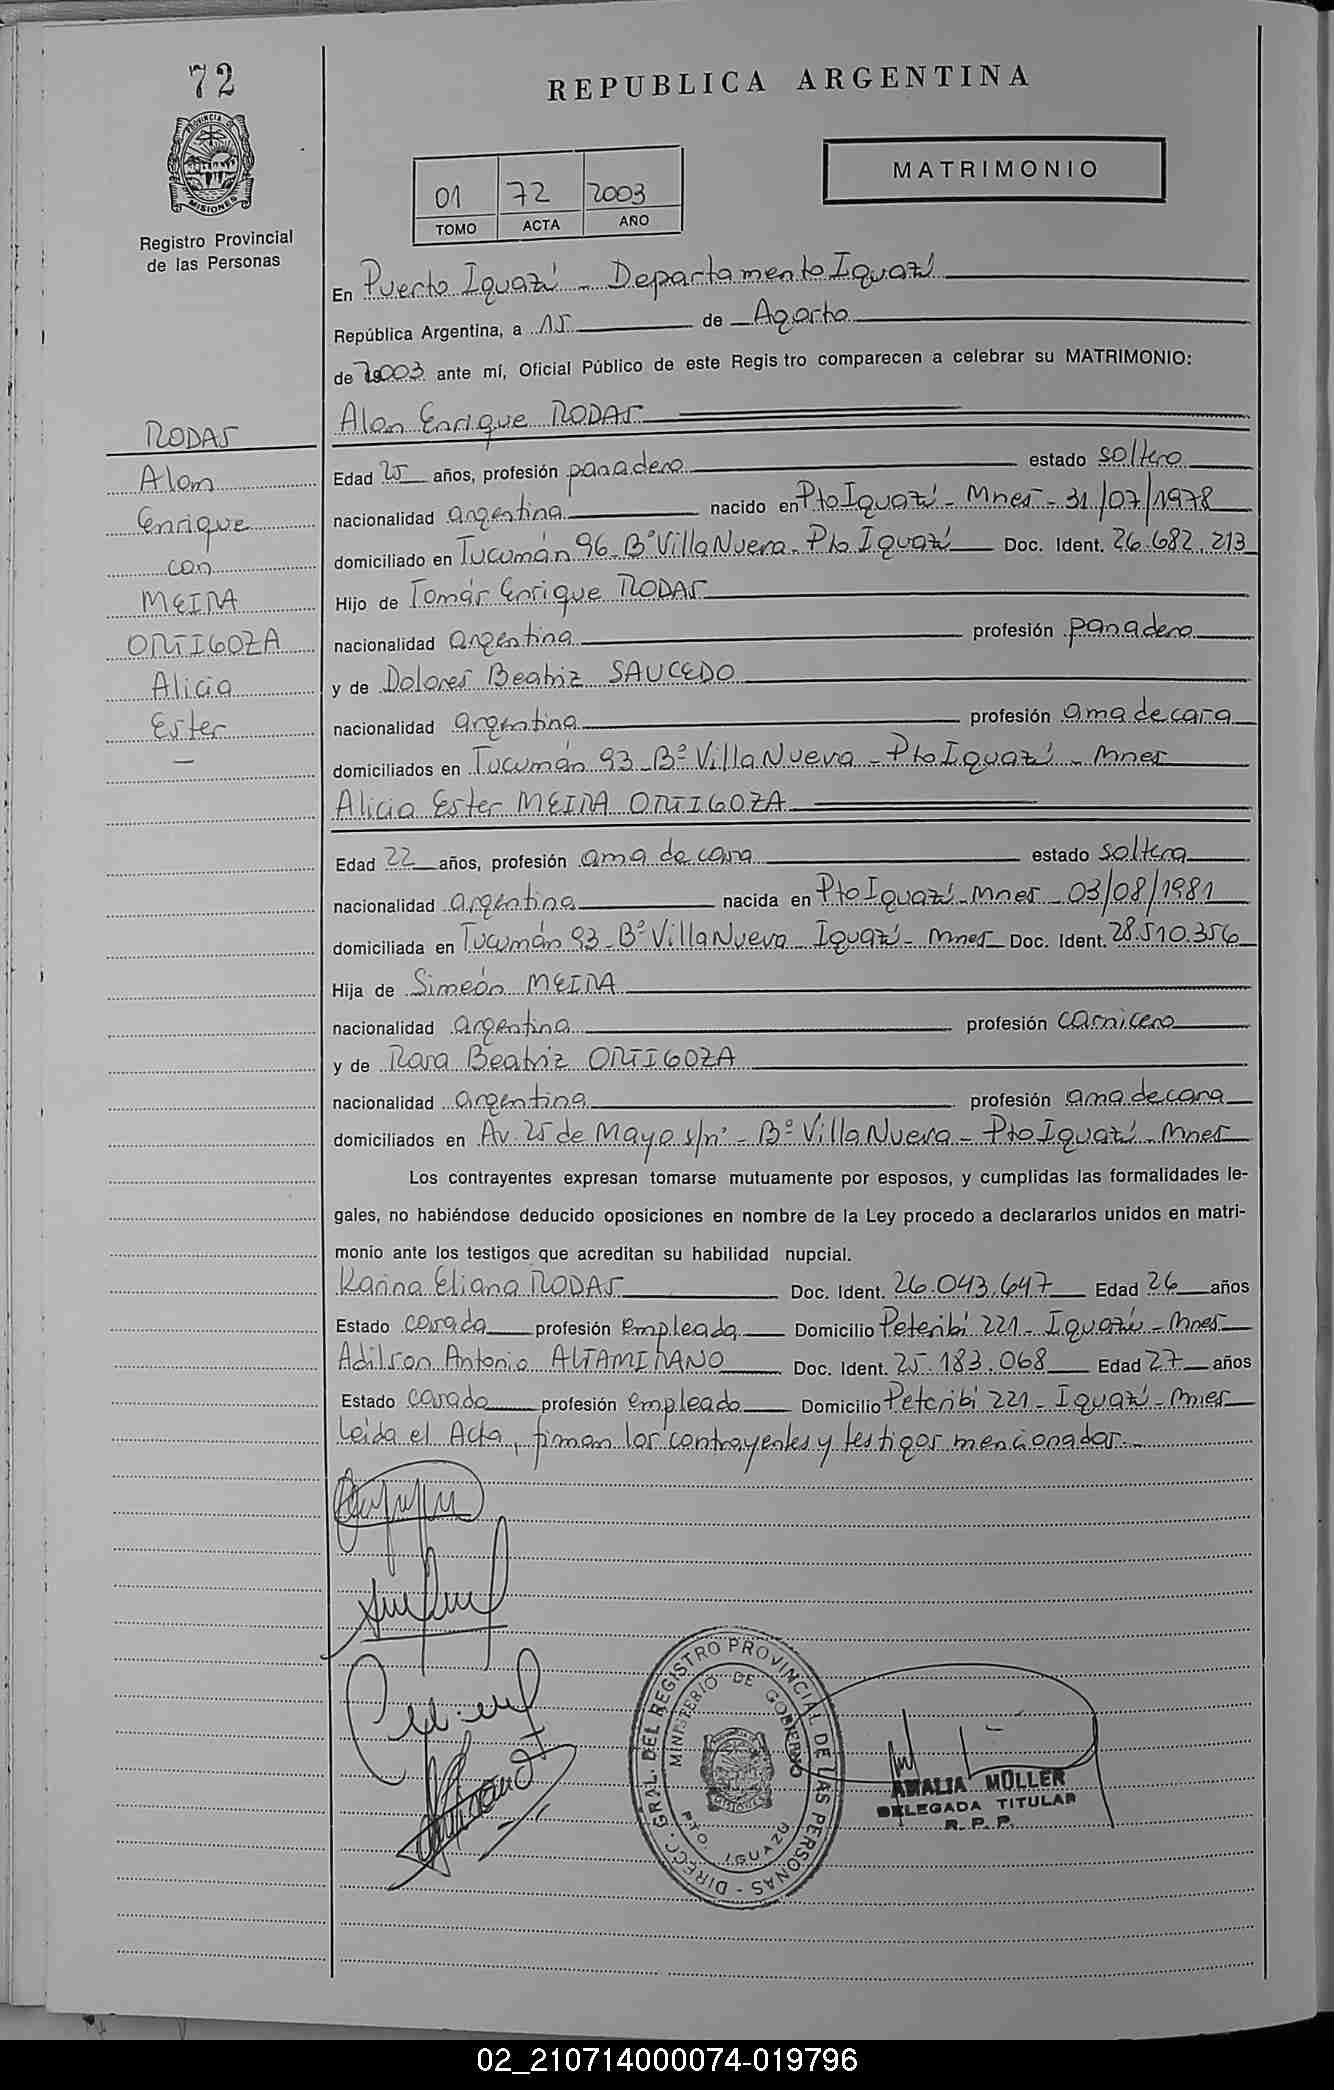 72
REPUBLICA ARGENTINA
PROVINCIA DE
MISIONES
Registro Provincial
de las Personas
01 72 2003
TOMO ACTA AÑO
MATRIMONIO
En Puerto Iguazú - Departamento Iguazú
República Argentina, a 15 de Agosto
de 2003 ante mí, Oficial Público de este Registro comparecen a celebrar su MATRIMONIO:
RODAS
Alan
Enrique
con
MEIRA
ORTIGOZA
Alicia
Ester
—
Alan Enrique RODAS
Edad 25 años, profesión panadero estado soltero
nacionalidad argentina nacido en Pto Iguazú - Mnes - 31/07/1978
domiciliado en Tucumán 96 - Bº Villa Nueva - Pto Iguazú Doc. Ident. 26.682.213
Hijo de Tomás Enrique RODAS
nacionalidad argentina profesión panadero
y de Dolores Beatriz SAUCEDO
nacionalidad argentina profesión ama de casa
domiciliados en Tucumán 93 - Bº Villa Nueva - Pto Iguazú - Mnes
Alicia Ester MEIRA ORTIGOZA
Edad 22 años, profesión ama de casa estado soltera
nacionalidad argentina nacida en Pto Iguazú - Mnes - 03/08/1981
domiciliada en Tucumán 93 - Bº Villa Nueva - Iguazú - Mnes Doc. Ident. 28.510.356
Hija de Simeón MEIRA
nacionalidad argentina profesión carnicero
y de Rosa Beatriz ORTIGOZA
nacionalidad argentina profesión ama de casa
domiciliados en Av. 25 de Mayo s/nº - Bº Villa Nueva - Pto Iguazú - Mnes
Los contrayentes expresan tomarse mutuamente por esposos, y cumplidas las formalidades le-
gales, no habiéndose deducido oposiciones en nombre de la Ley procedo a declararlos unidos en matri-
monio ante los testigos que acreditan su habilidad nupcial.
Karina Eliana RODAS Doc. Ident. 26.043.647 Edad 26 años
Estado casada profesión empleada Domicilio Peteribí 221 - Iguazú - Mnes
Adilson Antonio ALTAMIRANO Doc. Ident. 25.183.068 Edad 27 años
Estado casado profesión empleado Domicilio Peteribí 221 - Iguazú - Mnes
Leída el Acta, firman los contrayentes y testigos mencionados.-
DIRECC. GRAL. DEL REGISTRO PROVINCIAL DE LAS PERSONAS -
MINISTERIO DE GOBIERNO
PTO. IGUAZU
AMALIA MÜLLER
DELEGADA TITULAR
R. P. P.
02_210714000074-019796